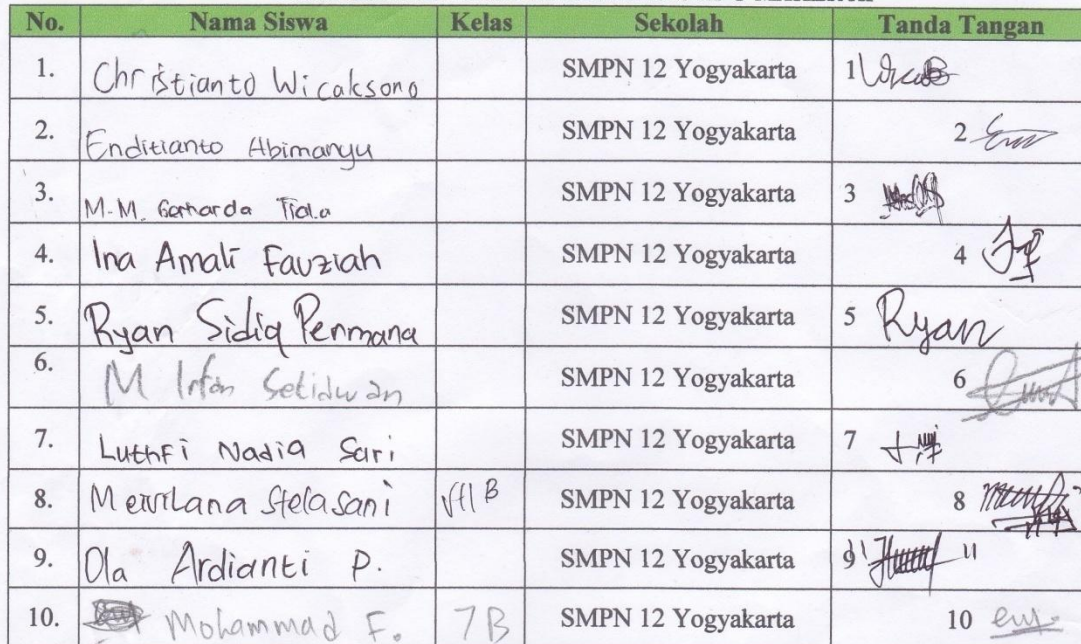 No. Nama Siswa Kelas Sekolah Tanda Tangan
1. Christianto Wicaksono SMPN 12 Yogyakarta 1
2. Enditianto Abimanyu SMPN 12 Yogyakarta 2
3. M.M. Gerharda Tiala SMPN 12 Yogyakarta 3
4. Ina Amali Fauziah SMPN 12 Yogyakarta 4
5. Ryan Sidiq Permana SMPN 12 Yogyakarta 5 Ryan
6. M Irfan Setiawan SMPN 12 Yogyakarta 6
7. Luthfi Nadia Sari SMPN 12 Yogyakarta 7
8. Stelasani VII B SMPN 12 Yogyakarta 8
9. Ola Ardianti P. SMPN 12 Yogyakarta 9
10. Mohammad F. 7B SMPN 12 Yogyakarta 10